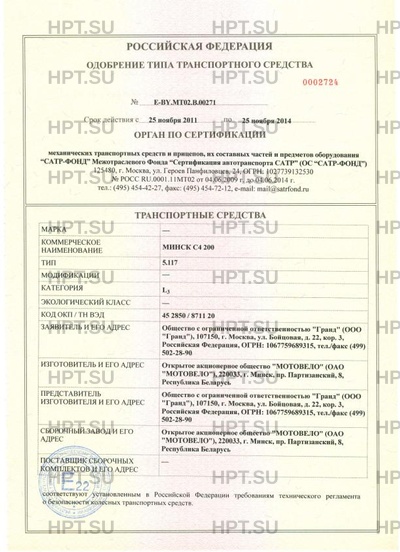 HPT.SU HPT.SU HPT.SU
РОССИЙСКАЯ ФЕДЕРАЦИЯ
ОДОБРЕНИЕ ТИПА ТРАНСПОРТНОГО СРЕДСТВА
0002724
№ E-BY.MT02.B.00271
Срок действия с 25 ноября 2011 по 25 ноября 2014
ОРГАН ПО СЕРТИФИКАЦИИ
механических транспортных средств и прицепов, их составных частей и предметов оборудования
"САТР-ФОНД" Межотраслевого Фонда "Сертификация автотранспорта САТР" (ОС "САТР-ФОНД")
125480, г. Москва, ул. Героев Панфиловцев, 24, ОГРН: 1027739132530
№ РОСС RU.0001.11МТ02 от 04.06.2009 г. до 04.06.2014 г.
тел.: (495) 454-42-27, факс: (495) 454-72-12, e-mail: mail@satrfond.ru
ТРАНСПОРТНЫЕ СРЕДСТВА
МАРКА —
КОММЕРЧЕСКОЕ
НАИМЕНОВАНИЕ МИНСК С4 200
ТИП 5.117
МОДИФИКАЦИИ —
КАТЕГОРИЯ L3
ЭКОЛОГИЧЕСКИЙ КЛАСС —
КОД ОКП / ТН ВЭД 45 2850 / 8711 20
ЗАЯВИТЕЛЬ И ЕГО АДРЕС Общество с ограниченной ответственностью "Гранд" (ООО
"Гранд"), 107150, г. Москва, ул. Бойцовая, д. 22, кор. 3,
Российская Федерация, ОГРН: 1067759689315, тел./факс (499)
502-28-90
ИЗГОТОВИТЕЛЬ И ЕГО АДРЕС Открытое акционерное общество "МОТОВЕЛО" (ОАО
"МОТОВЕЛО"), 220033, г. Минск, пр. Партизанский, 8,
Республика Беларусь
ПРЕДСТАВИТЕЛЬ
ИЗГОТОВИТЕЛЯ И ЕГО АДРЕС Общество с ограниченной ответственностью "Гранд" (ООО
"Гранд"), 107150, г. Москва, ул. Бойцовая, д. 22, кор. 3,
Российская Федерация, ОГРН: 1067759689315, тел./факс (499)
502-28-90
СБОРОЧНЫЙ ЗАВОД И ЕГО
АДРЕС Открытое акционерное общество "МОТОВЕЛО" (ОАО
"МОТОВЕЛО"), 220033, г. Минск, пр. Партизанский, 8,
Республика Беларусь
ПОСТАВЩИК СБОРОЧНЫХ
КОМПЛЕКТОВ И ЕГО АДРЕС —
E22
соответствуют установленным в Российской Федерации требованиям технического регламента
о безопасности колесных транспортных средств.
HPT.SU HPT.SU HPT.SU